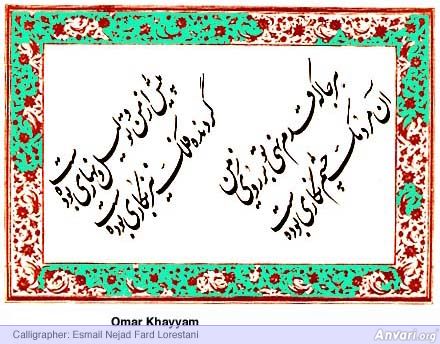 هر جا که قدم نهی تو بر روی زمین
آن مردمک چشم نگاری بوده ست
پیش از من و تو لیل و نهاری بوده ست
گردنده فلک نیز بکاری بوده ست
Omar Khayyam
Calligrapher: Esmail Nejad Fard Lorestani
Anvari.org